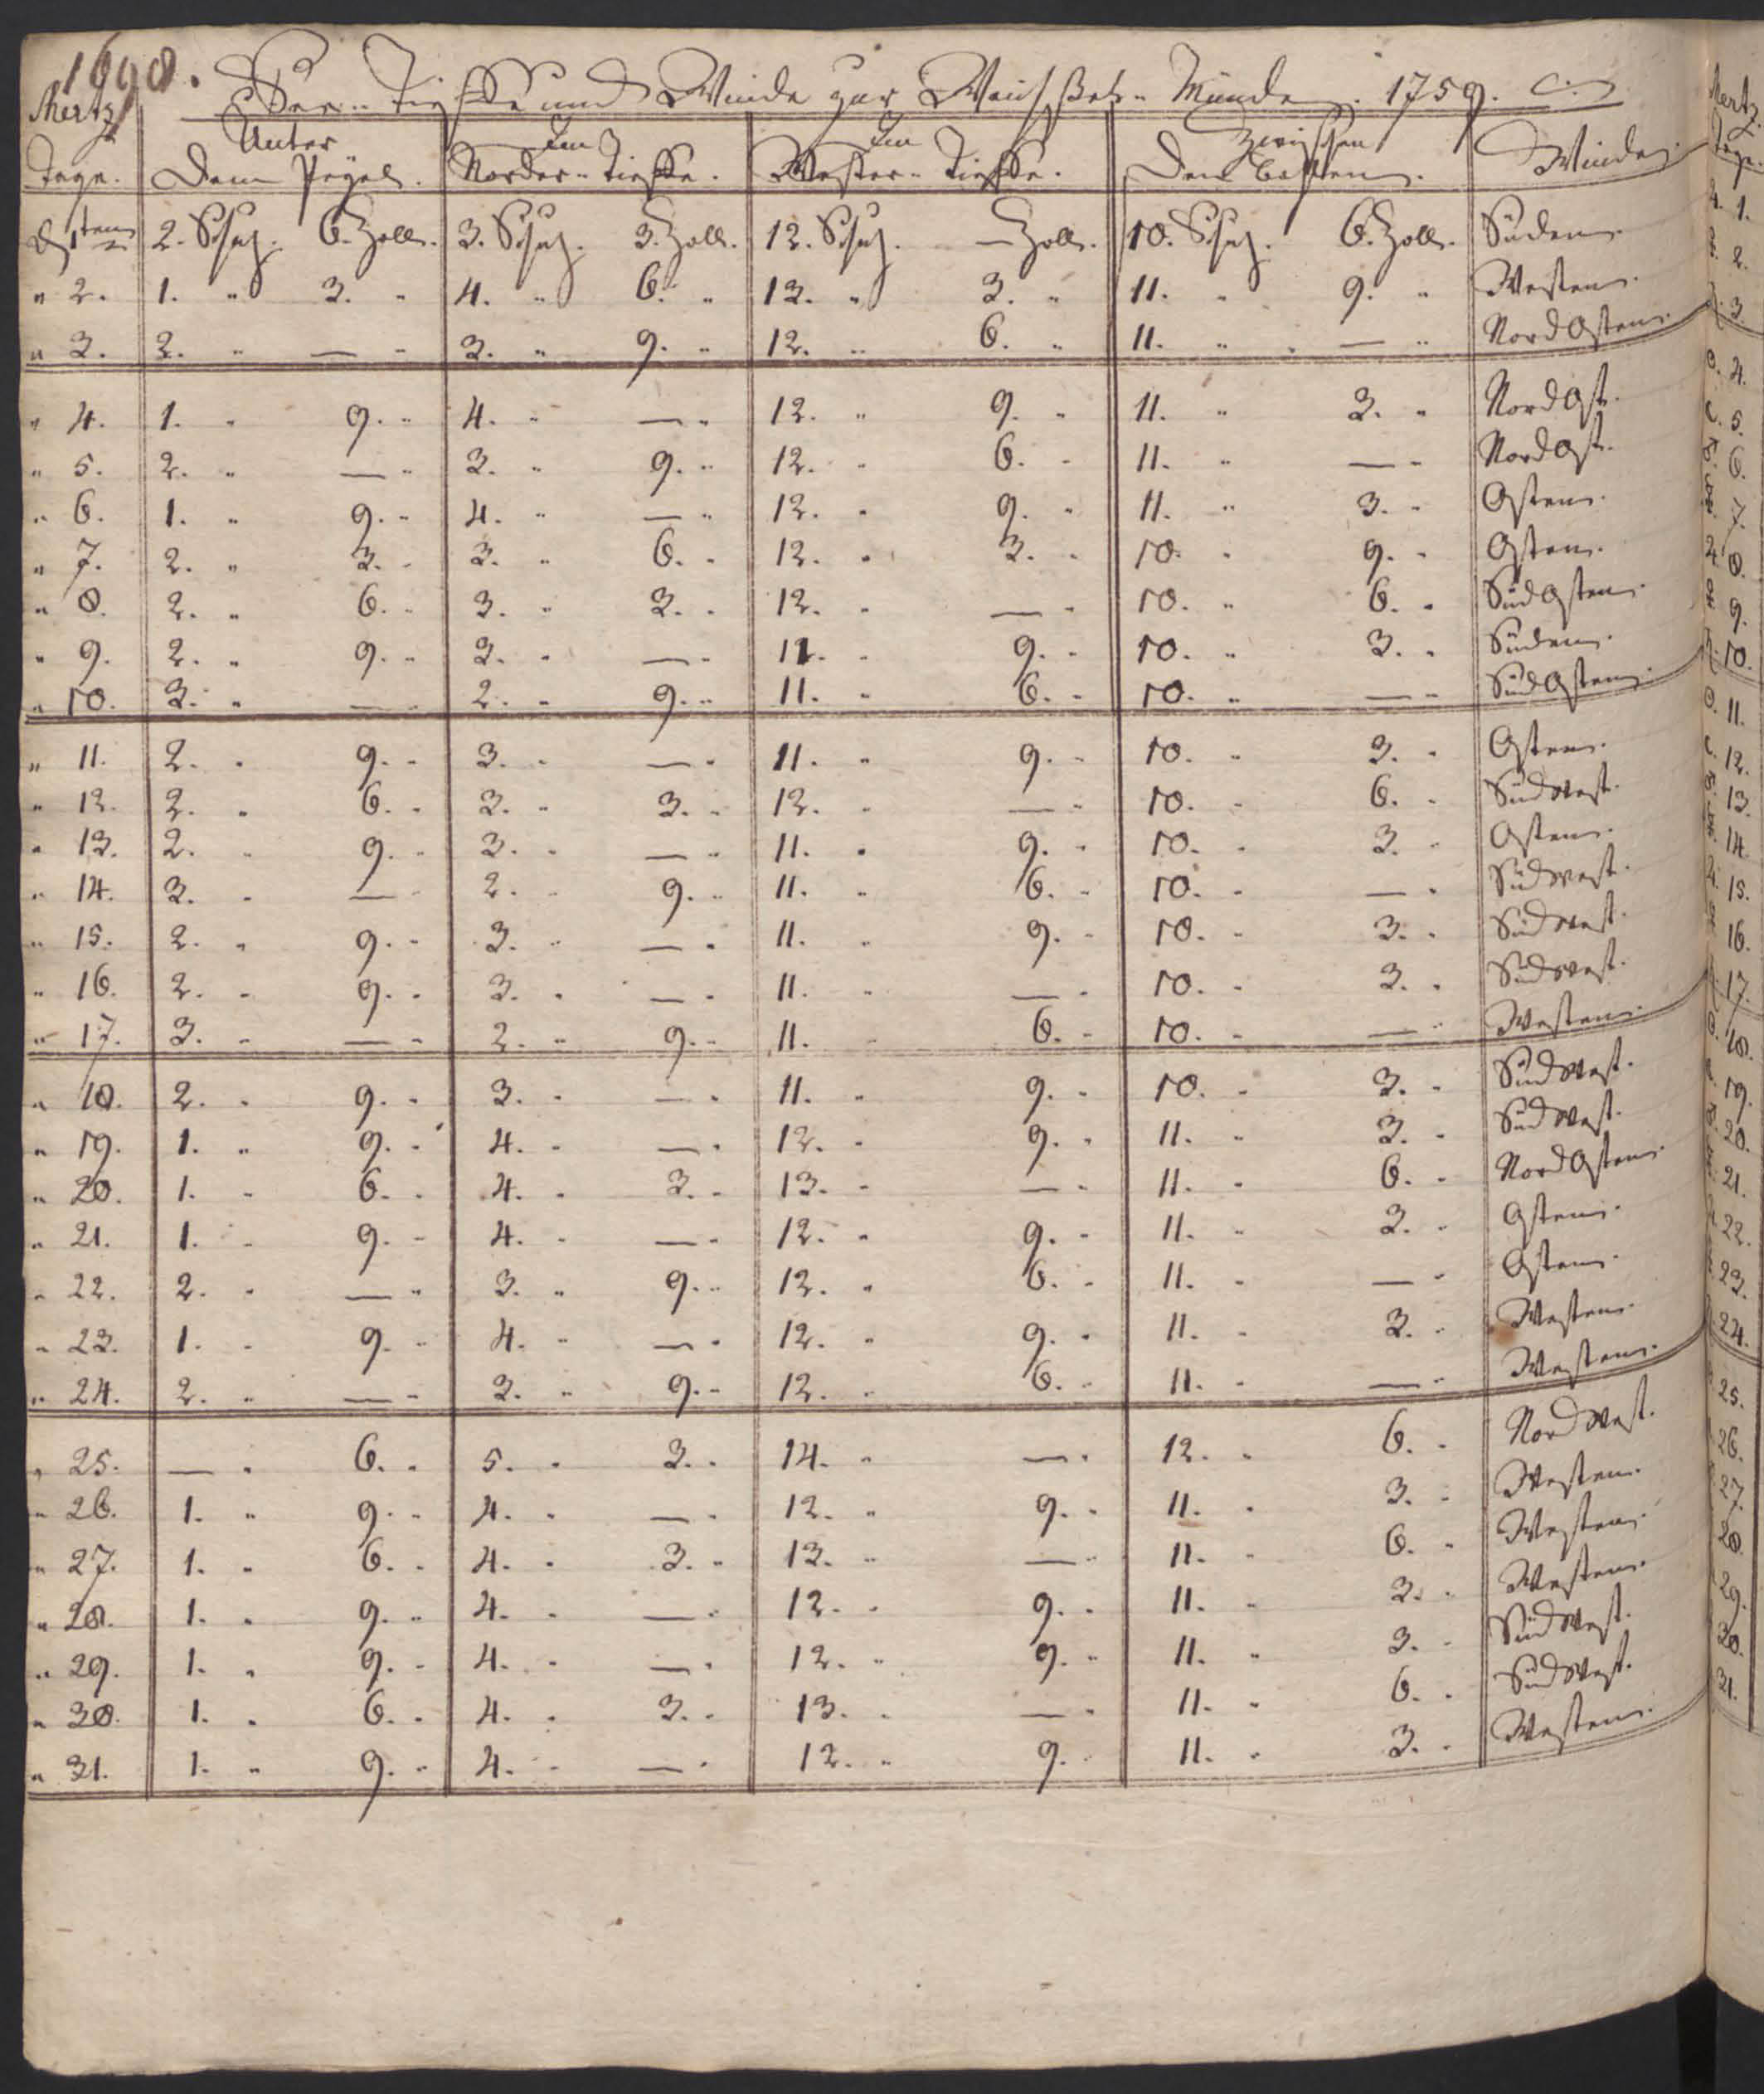 1698.
Mertz
Seer-Tieffe und Winde zur Weichßel-Münde. 1759.
Unter Im Im Zwischen
Tage. Dem Pegel. Norder-Tieffe. Wester-Tieffe. Den Winde
D 1ten 2. Schuh. 6. Zoll. 3. Schuh. 3. Zoll. 12. Schuh. — Zoll. 10. Schuh. 6. Zoll. Süden.
" 2. 1. " 3. " 4. " 6. " 13. " 3. " 11. " 9. " Westen.
" 3. 2. " — " 3. " 9. " 12. " 6. " 11. " — " NordOsten.
" 4. 1. " 9. " 4. " — " 12. " 9. " 11. " 3. " NordOst.
" 5. 2. " — " 3. " 9. " 12. " 6. " 11. " — " NordOst.
" 6. 1. " 9. " 4. " — " 12. " 9. " 11. " 3. " Osten.
" 7. 2. " 3. " 3. " 6. " 12. " 3. " 10. " 9. " Osten.
" 8. 2. " 6. " 3. " 3. " 12. " — " 10. " 6. " SüdOsten.
" 9. 2. " 9. " 3. " — " 11. " 9. " 10. " 3. " Süden.
" 10. 3. " — " 2. " 9. " 11. " 6. " 10. " — " SüdOsten.
" 11. 2. " 9. " 3. " — " 11. " 9. " 10. " 3. " Osten.
" 12. 2. " 6. " 3. " 3. " 12. " — " 10. " 6. " Südwest.
" 13. 2. " 9. " 3. " — " 11. " 9. " 10. " 3. " Osten.
" 14. 3. " — " 2. " 9. " 11. " 6. " 10. " — " Südwest.
" 15. 2. " 9. " 3. " — " 11. " 9. " 10. " 3. " Südwest.
" 16. 2. " 9. " 3. " — " 11. " — " 10. " 3. " Südwest.
" 17. 3. " — " 2. " 9. " 11. " 6. " 10. " — " Westen.
" 18. 2. " 9. " 3. " — " 11. " 9. " 10. " 3. " Südwest.
" 19. 1. " 9. " 4. " — " 12. " 9. " 11. " 3. " Südwest.
" 20. 1. " 6. " 4. " 3. " 13. " — " 11. " 6. " NordOsten.
" 21. 1. " 9. " 4. " — " 12. " 9. " 11. " 3. " Osten.
" 22. 2. " — " 3. " 9. " 12. " 6. " 11. " — " Osten.
" 23. 1. " 9. " 4. " — " 12. " 9. " 11. " 3. " Westen.
" 24. 2. " — " 3. " 9. " 12. " 6. " 11. " — " Westen.
" 25. — " 6. " 5. " 3. " 14. " — " 12. " 6. " Nordwest.
" 26. 1. " 9. " 4. " — " 12. " 9. " 11. " 3. " Westen.
" 27. 1. " 6. " 4. " 3. " 13. " — " 11. " 6. " Westen.
" 28. 1. " 9. " 4. " — " 12. " 9. " 11. " 3. " Westen.
" 29. 1. " 9. " 4. " — " 12. " 9. " 11. " 3. " Südwest.
" 30. 1. " 6. " 4. " 3. " 13. " — " 11. " 6. " Südwest.
" 31. 1. " 9. " 4. " — " 12. " 9. " 11. " 3. " Westen.
Mertz
Tage.
1.
2.
3.
4.
5.
6.
7.
8.
9.
10.
11.
12.
13.
14.
15.
16.
17.
18.
19.
20.
21.
22.
23.
24.
25.
26.
27.
28.
29.
30.
31.